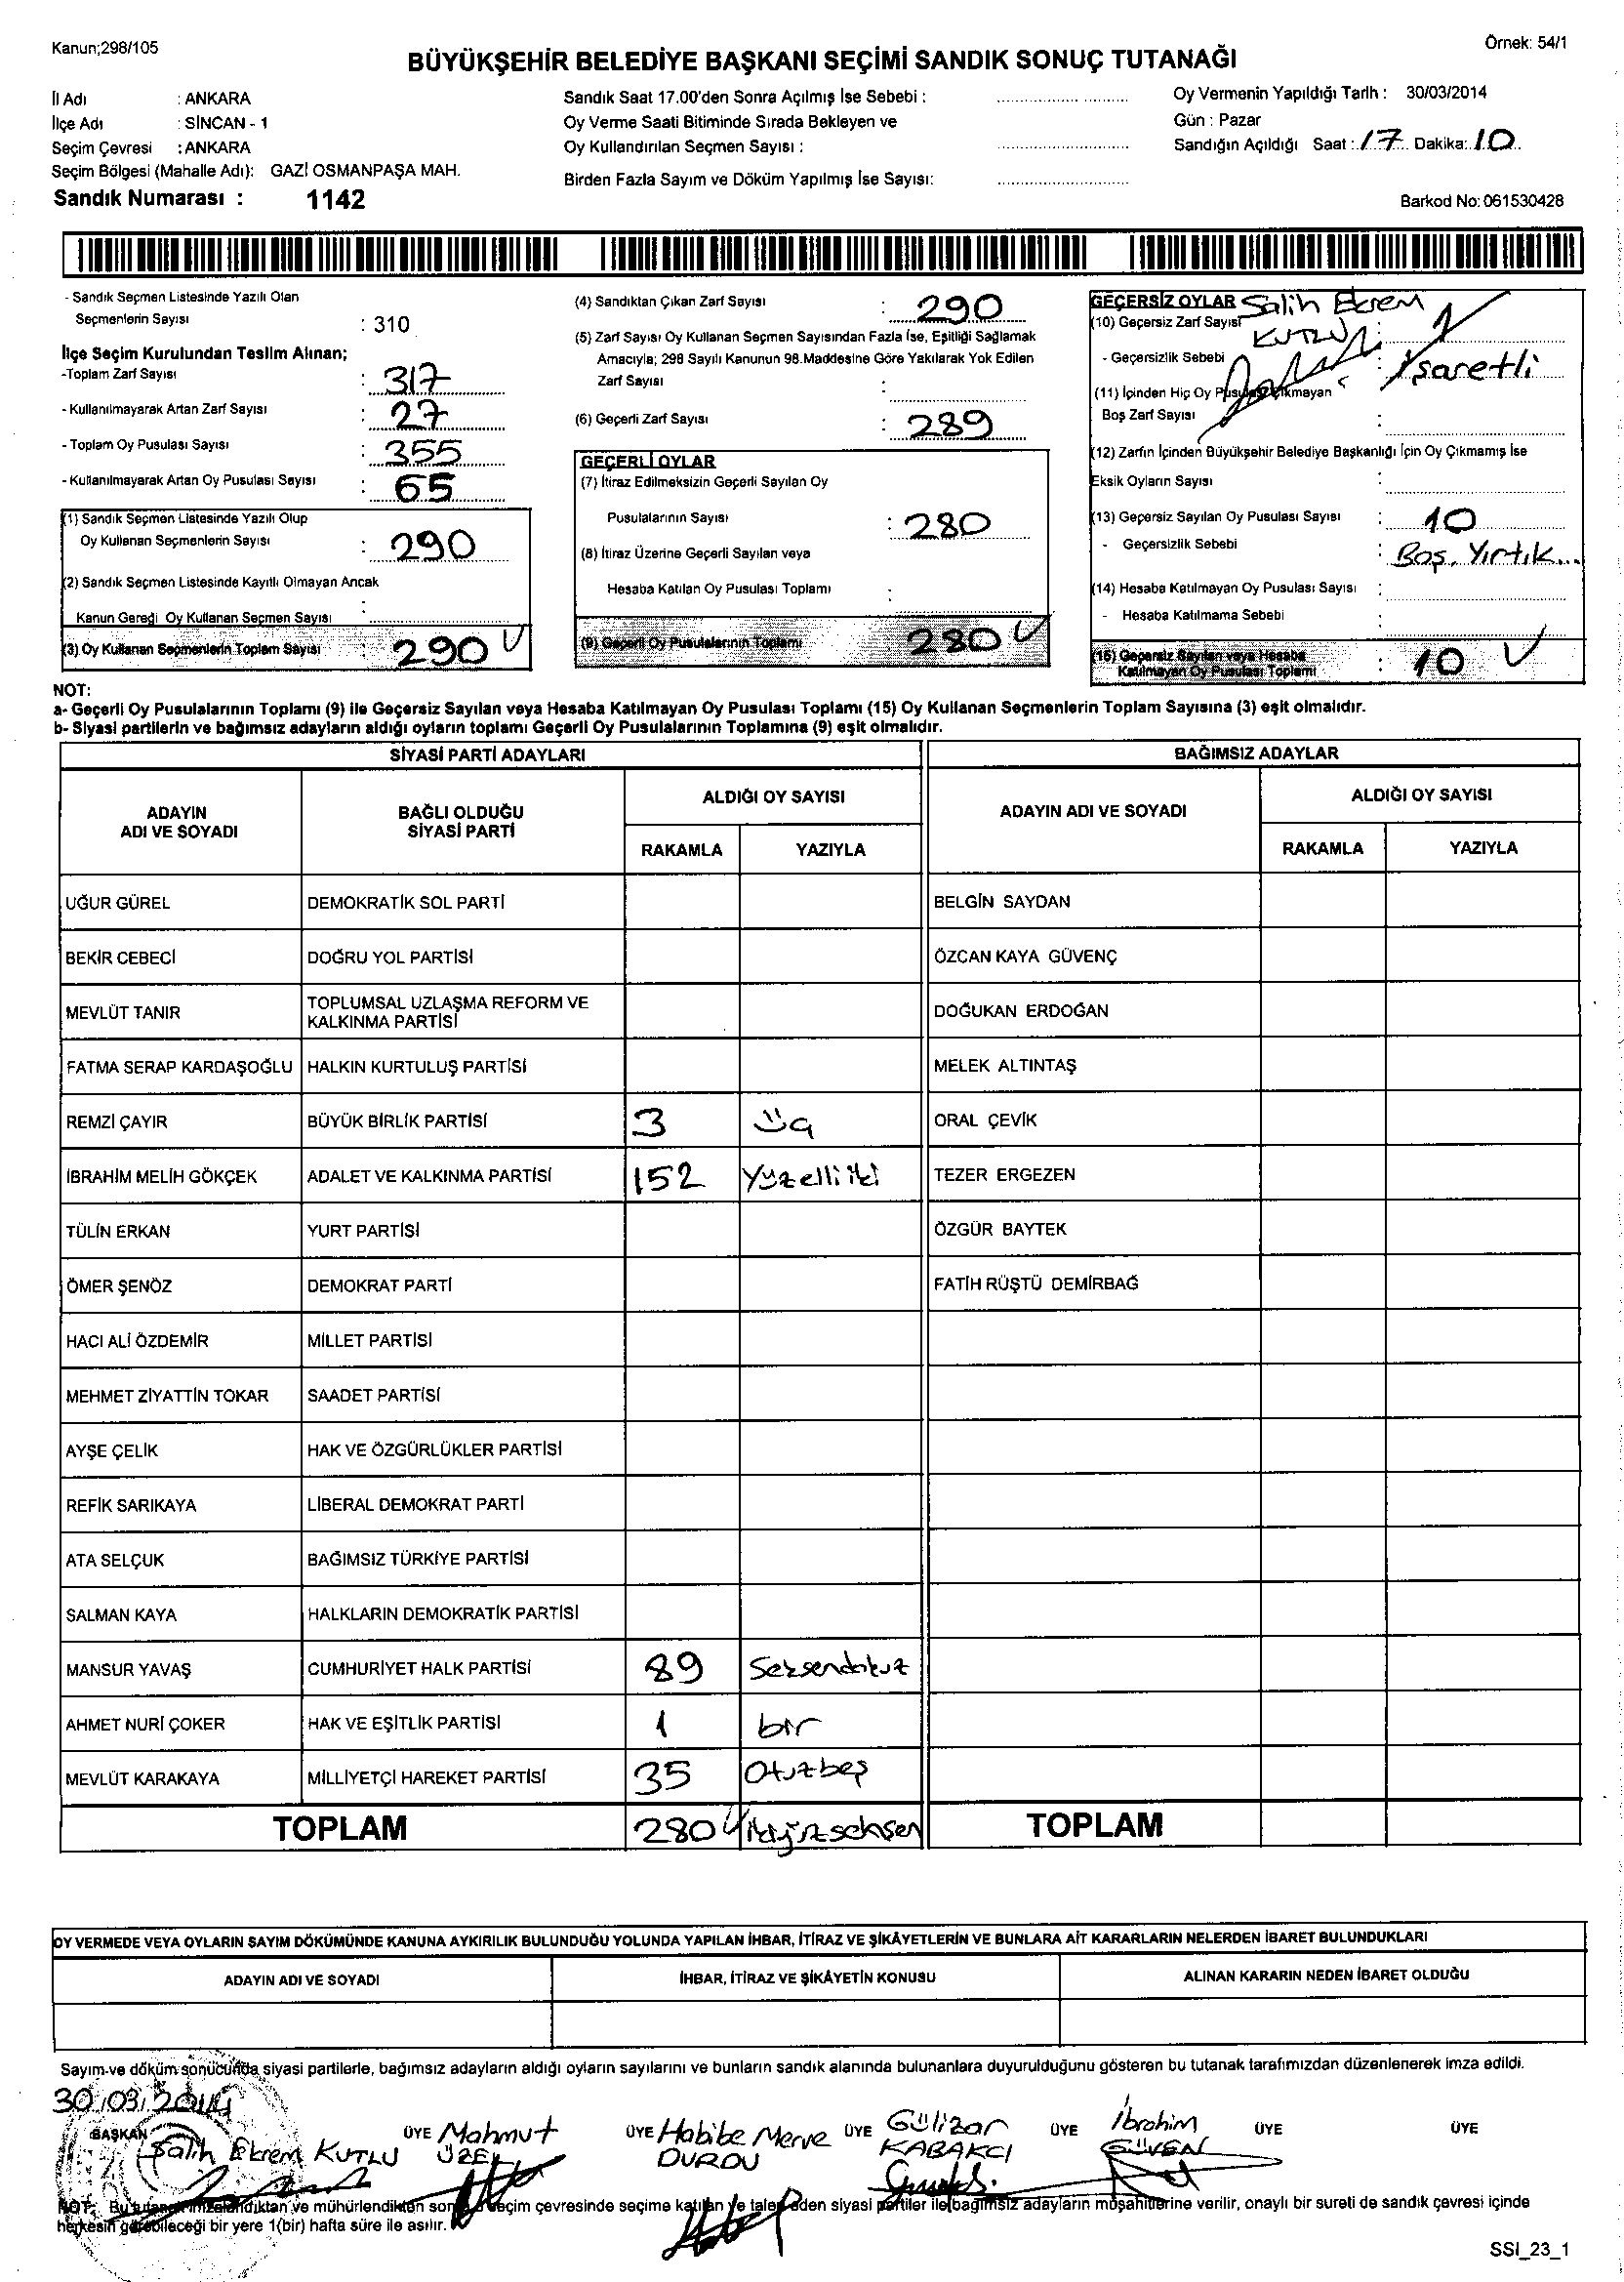 Kanun;298/105
Örnek: 54/1
BÜYÜKŞEHİR BELEDİYE BAŞKANI SEÇİMİ SANDIK SONUÇ TUTANAĞI
İl Adı : ANKARA
İlçe Adı : SİNCAN - 1
Seçim Çevresi : ANKARA
Seçim Bölgesi (Mahalle Adı): GAZİ OSMANPAŞA MAH.
Sandık Numarası : 1142
Sandık Saat 17.00'den Sonra Açılmış İse Sebebi :
Oy Verme Saati Bitiminde Sırada Bekleyen ve
Oy Kullandırılan Seçmen Sayısı :
Birden Fazla Sayım ve Döküm Yapılmış İse Sayısı:
Oy Vermenin Yapıldığı Tarih : 30/03/2014
Gün : Pazar
Sandığın Açıldığı Saat : 17 Dakika: 10
Barkod No: 061530428
- Sandık Seçmen Listesinde Yazılı Olan
Seçmenlerin Sayısı : 310
İlçe Seçim Kurulundan Teslim Alınan;
-Toplam Zarf Sayısı : 317
- Kullanılmayarak Artan Zarf Sayısı : 27
- Toplam Oy Pusulası Sayısı : 355
- Kullanılmayarak Artan Oy Pusulası Sayısı : 65
(1) Sandık Seçmen Listesinde Yazılı Olup
Oy Kullanan Seçmenlerin Sayısı : 290
(2) Sandık Seçmen Listesinde Kayıtlı Olmayan Ancak
Kanun Gereği Oy Kullanan Seçmen Sayısı :
(3) Oy Kullanan Seçmenlerin Toplam Sayısı : 290
(4) Sandıktan Çıkan Zarf Sayısı : 290
(5) Zarf Sayısı Oy Kullanan Seçmen Sayısından Fazla İse, Eşitliği Sağlamak
Amacıyla; 298 Sayılı Kanunun 98.Maddesine Göre Yakılarak Yok Edilen
Zarf Sayısı :
(6) Geçerli Zarf Sayısı : 289
GEÇERLİ OYLAR
(7) İtiraz Edilmeksizin Geçerli Sayılan Oy
Pusulalarının Sayısı : 280
(8) İtiraz Üzerine Geçerli Sayılan veya
Hesaba Katılan Oy Pusulası Toplamı :
(9) Geçerli Oy Pusulalarının Toplamı 280
GEÇERSİZ OYLAR Salih Ekrem
(10) Geçersiz Zarf Sayısı KUTLU : 1
- Geçersizlik Sebebi : İşaretli
(11) İçinden Hiç Oy Pusulası Çıkmayan
Boş Zarf Sayısı :
(12) Zarfın İçinden Büyükşehir Belediye Başkanlığı İçin Oy Çıkmamış İse
Eksik Oyların Sayısı :
(13) Geçersiz Sayılan Oy Pusulası Sayısı : 10
- Geçersizlik Sebebi : Boş, Yırtık...
(14) Hesaba Katılmayan Oy Pusulası Sayısı :
- Hesaba Katılmama Sebebi :
(15) Geçersiz Sayılan veya Hesaba
Katılmayan Oy Pusulası Toplamı : 10
NOT:
a- Geçerli Oy Pusulalarının Toplamı (9) ile Geçersiz Sayılan veya Hesaba Katılmayan Oy Pusulası Toplamı (15) Oy Kullanan Seçmenlerin Toplam Sayısına (3) eşit olmalıdır.
b- Siyasi partilerin ve bağımsız adayların aldığı oyların toplamı Geçerli Oy Pusulalarının Toplamına (9) eşit olmalıdır.
SİYASİ PARTİ ADAYLARI
BAĞIMSIZ ADAYLAR
ADAYIN
ADI VE SOYADI
BAĞLI OLDUĞU
SİYASİ PARTİ
ALDIĞI OY SAYISI
RAKAMLA YAZIYLA
ADAYIN ADI VE SOYADI
ALDIĞI OY SAYISI
RAKAMLA YAZIYLA
UĞUR GÜREL DEMOKRATİK SOL PARTİ BELGİN SAYDAN
BEKİR CEBECİ DOĞRU YOL PARTİSİ ÖZCAN KAYA GÜVENÇ
MEVLÜT TANIR TOPLUMSAL UZLAŞMA REFORM VE
KALKINMA PARTİSİ DOĞUKAN ERDOĞAN
FATMA SERAP KARDAŞOĞLU HALKIN KURTULUŞ PARTİSİ MELEK ALTINTAŞ
REMZİ ÇAYIR BÜYÜK BİRLİK PARTİSİ 3 üç ORAL ÇEVİK
İBRAHİM MELİH GÖKÇEK ADALET VE KALKINMA PARTİSİ 152 Yüzelliiki TEZER ERGEZEN
TÜLİN ERKAN YURT PARTİSİ ÖZGÜR BAYTEK
ÖMER ŞENÖZ DEMOKRAT PARTİ FATİH RÜŞTÜ DEMİRBAĞ
HACI ALİ ÖZDEMİR MİLLET PARTİSİ
MEHMET ZİYATTİN TOKAR SAADET PARTİSİ
AYŞE ÇELİK HAK VE ÖZGÜRLÜKLER PARTİSİ
REFİK SARIKAYA LİBERAL DEMOKRAT PARTİ
ATA SELÇUK BAĞIMSIZ TÜRKİYE PARTİSİ
SALMAN KAYA HALKLARIN DEMOKRATİK PARTİSİ
MANSUR YAVAŞ CUMHURİYET HALK PARTİSİ 89 Seksendokuz
AHMET NURİ ÇOKER HAK VE EŞİTLİK PARTİSİ 1 bir
MEVLÜT KARAKAYA MİLLİYETÇİ HAREKET PARTİSİ 35 Otuzbeş
TOPLAM 280 ikiyüzseksen TOPLAM
OY VERMEDE VEYA OYLARIN SAYIM DÖKÜMÜNDE KANUNA AYKIRILIK BULUNDUĞU YOLUNDA YAPILAN İHBAR, İTİRAZ VE ŞİKÂYETLERİN VE BUNLARA AİT KARARLARIN NELERDEN İBARET BULUNDUKLARI
ADAYIN ADI VE SOYADI İHBAR, İTİRAZ VE ŞİKÂYETİN KONUSU ALINAN KARARIN NEDEN İBARET OLDUĞU
Sayım ve döküm sonucunda siyasi partilerle, bağımsız adayların aldığı oyların sayılarını ve bunların sandık alanında bulunanlara duyurulduğunu gösteren bu tutanak tarafımızdan düzenlenerek imza edildi.
30/03/2014
BAŞKAN Salih Ekrem KUTLU
ÜYE Mahmut ÜZEL
ÜYE Habibe Merve DURDU
ÜYE Gülizar KABAKCI
ÜYE İbrahim GÜVEN
ÜYE
ÜYE
NOT: Bu tutanak imzalandıktan ve mühürlendikten sonra seçim çevresinde seçime katılan ve talep eden siyasi partiler ile bağımsız adayların müşahitlerine verilir, onaylı bir sureti de sandık çevresi içinde
herkesin görebileceği bir yere 1(bir) hafta süre ile asılır.
SSI_23_1